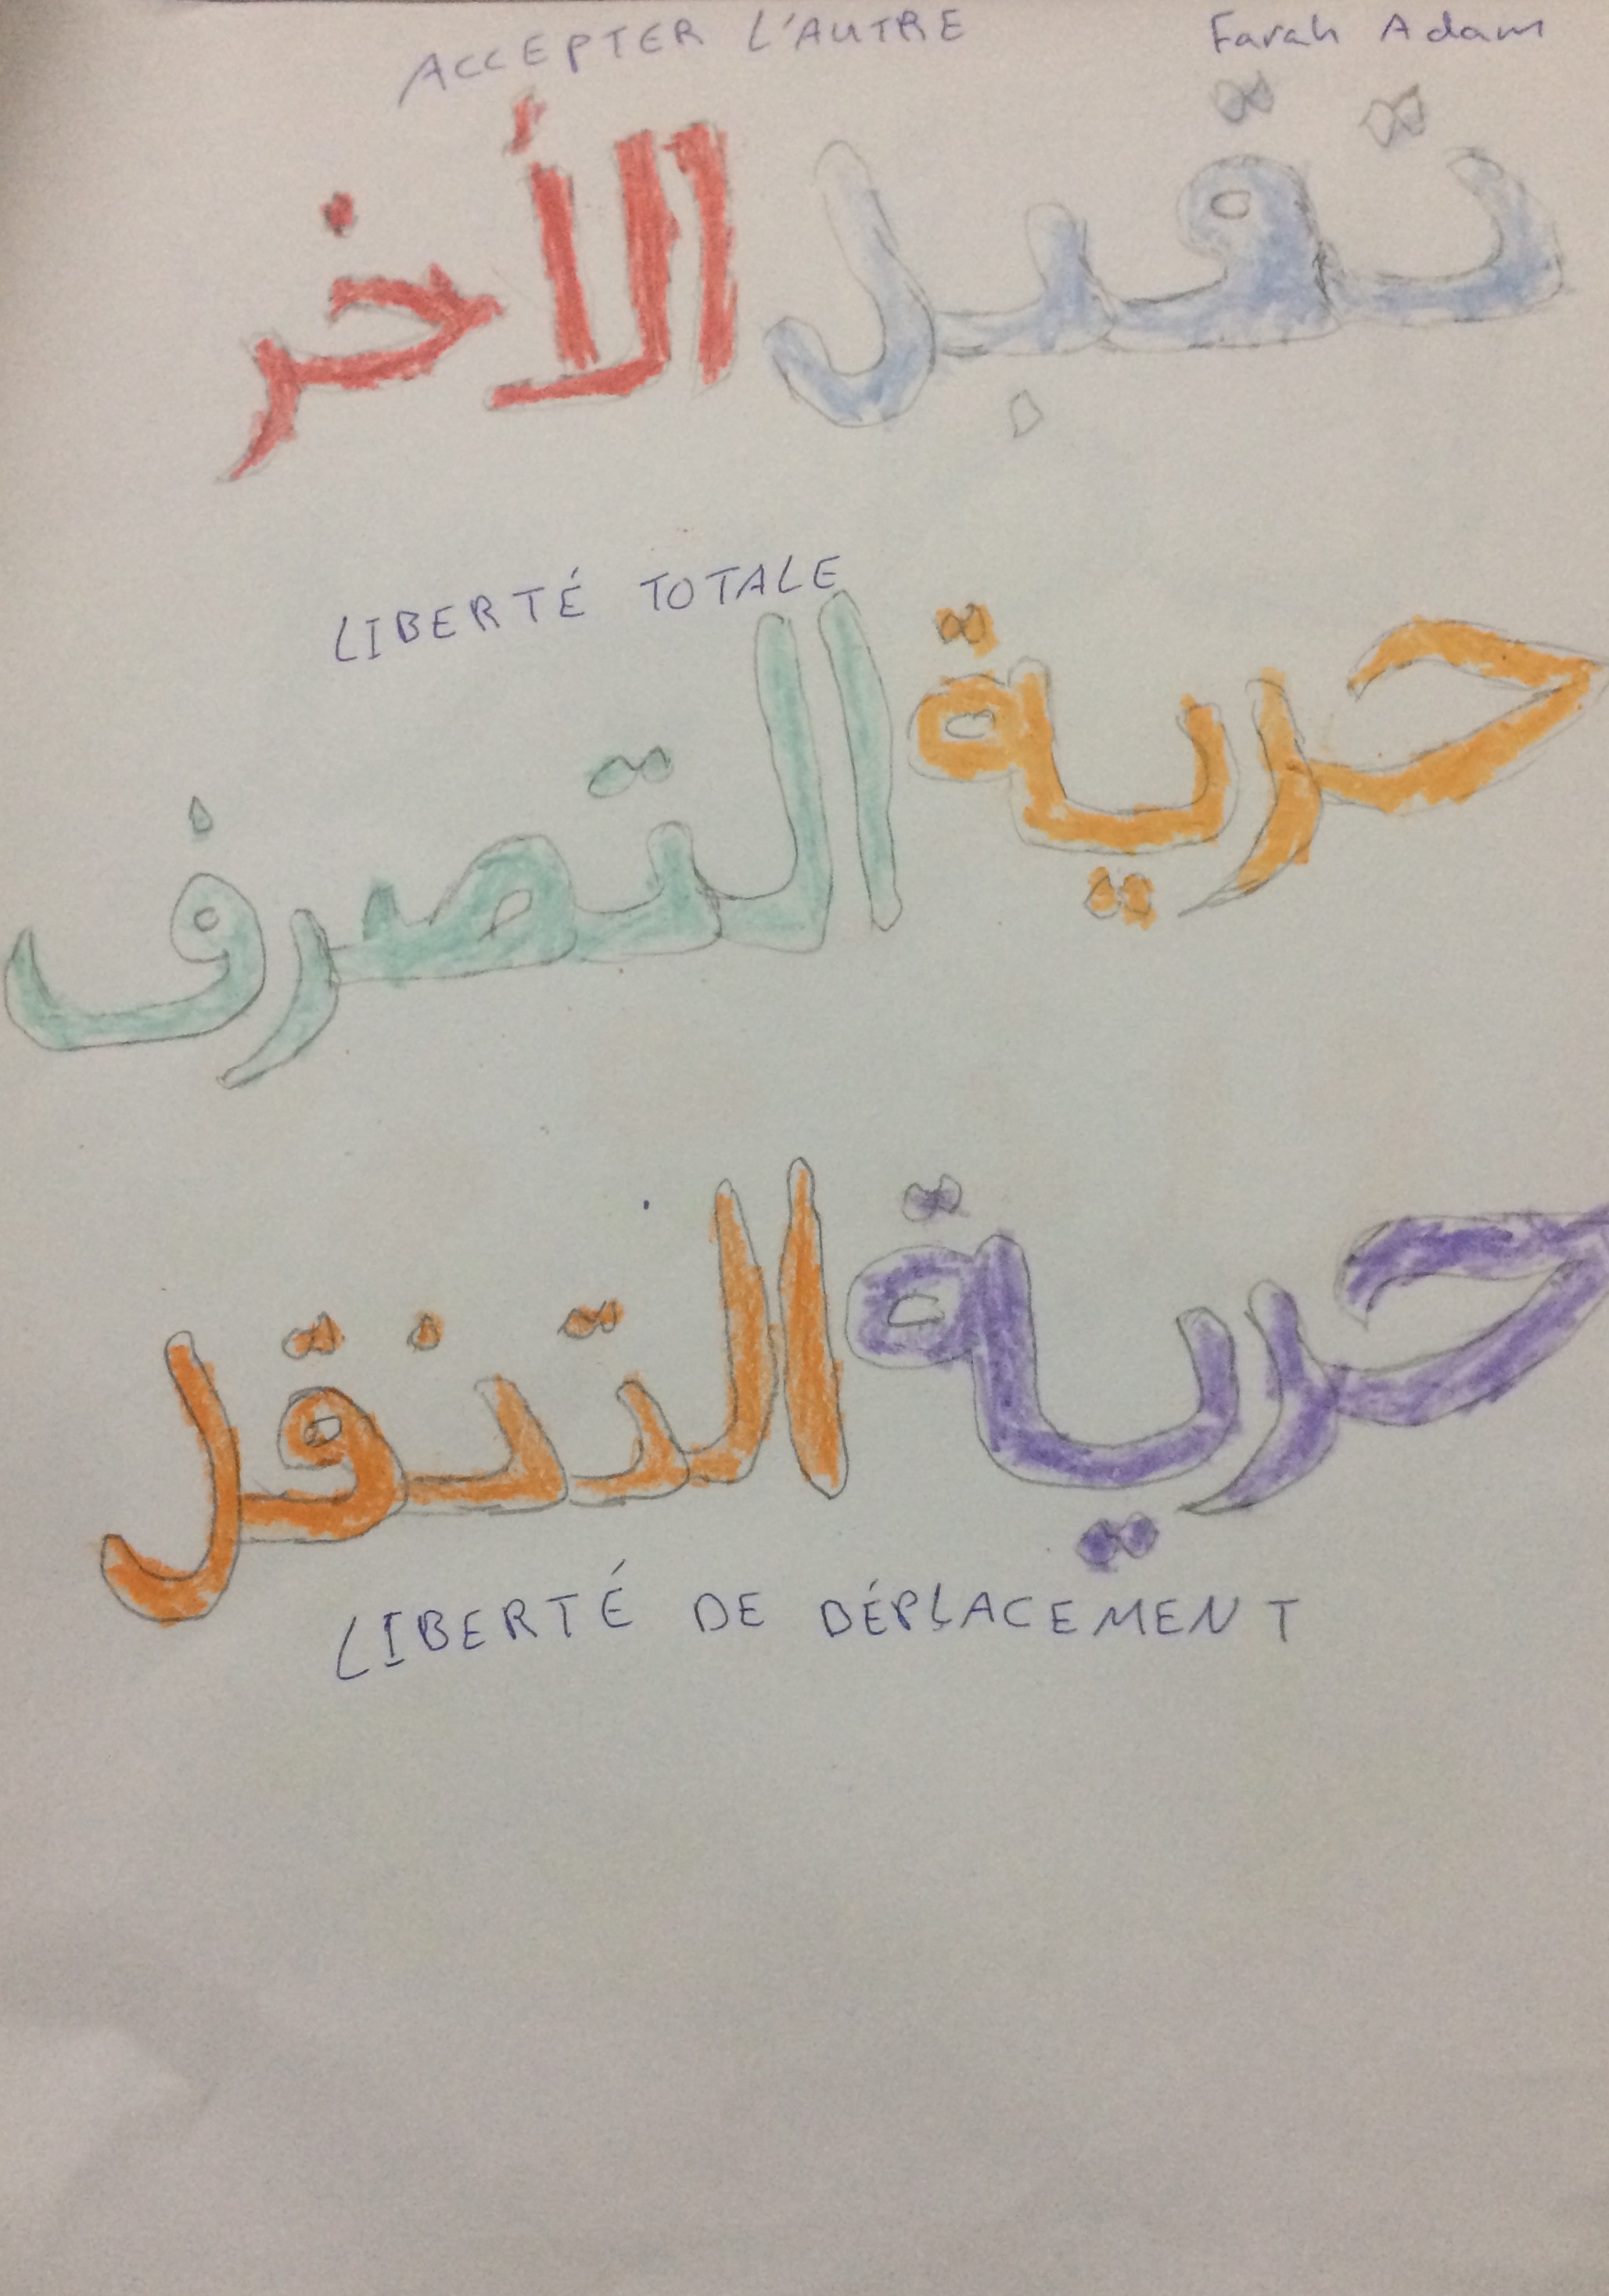 ACCEPTER L'AUTRE Farah Adam
تقبل الأخر
LIBERTÉ TOTALE
حرية التصرف
حرية التنقل
LIBERTÉ DE DÉPLACEMENT